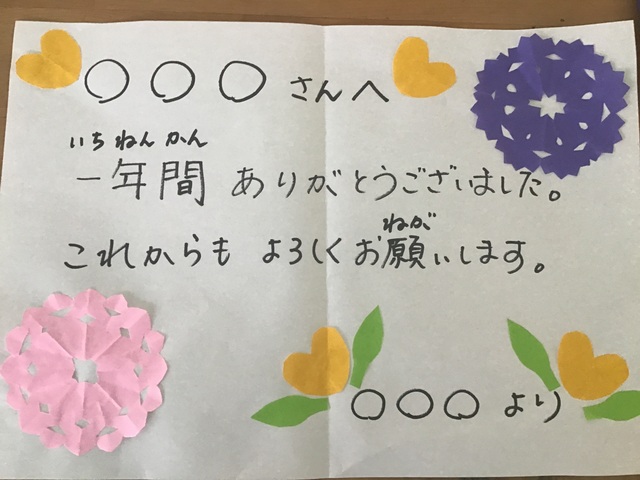 ○○○さんへ
いちねんかん
一年間 ありがとうございました。
ねが
これからも よろしくお願いします。
○○○より